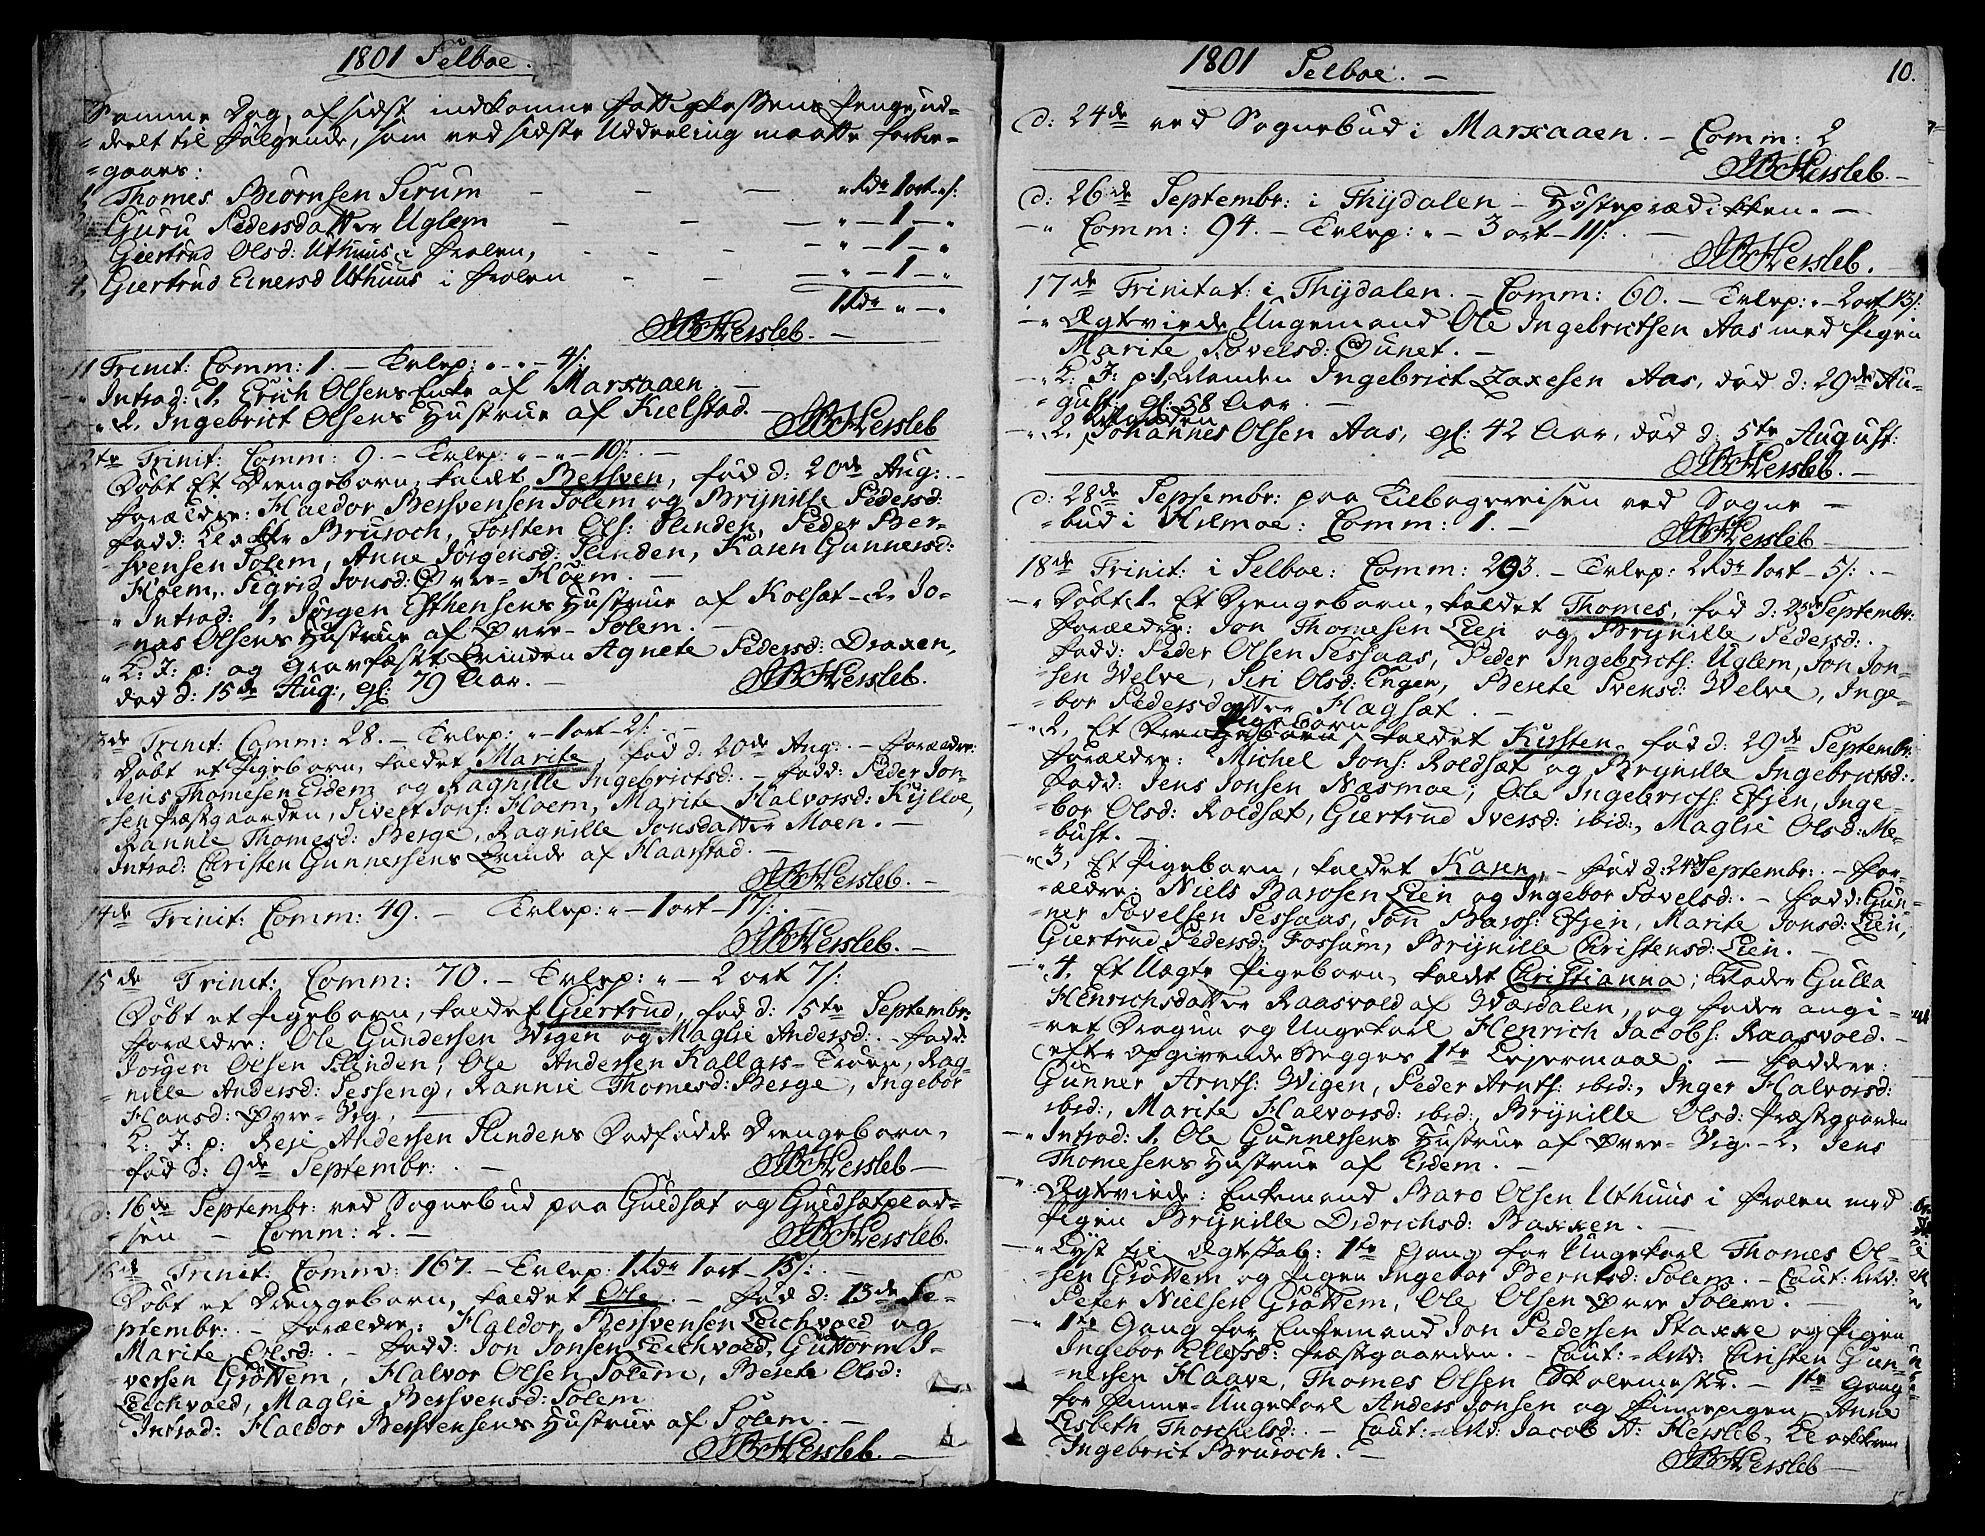 1801 Selboe.
Samme Dag, af sidst indkomne fattigkassens Penge, ud-
deelt til følgende, som ved sidste Uddeeling maatte forbie-
gaaes:
1, Thomes Biörnsen Serum - - - " rdr 1 ort - s:
2, Guru Pedersdatter Uglem - - - " - 1 - "
3, Giertrud Olsd: Uthuus i Frolen, - - " - 1 - "
4, Giertrud Einersd Uthuus i Frolen - - - " - 1 - "
1 rdr " - "
JBHersleb. -
11 Trinit: Comm: 1. - Erlep: " - " - 4 s:
Introd: 1, Erich Olsens Enke af Marxaaen. -
2, Ingebrict Olsens Hustrue af Kielstad. -
JBHersleb
12te Trinit: Comm: 9. - Erlep: " - " - 10 s: -
Døbt Et Drengebarn, kaldet Bersven, fød d: 20de Aug: -
Forældre: Haldor Bersvensen Solem og Brynille Pedersd:
Fadd: Brusoch, Torsten Ols: Slinden, Peder Ber-
svensen Solem, Anne Jörgensd: Slinden, Karen Gunnersd:
Hoem, Sigrid Jonsd: Øvre-Hoem. -
" Introd: 1, Jörgen Esthensens Hustrue af Kolsat - 2, Jo-
nas Olsens Hustrue af Øvre-Solem. -
" L: J: p: og Gravfæstet Qvinden Agnete Pedersd: Draxen,
død d: 15de Aug:, gl: 79 Aar. -
JBHersleb.
13de Trinit: Comm: 28. - Erlep: " - 1 ort - 2 s: -
Døbt et Pigebarn, kaldet Marite, fød d: 20de Aug: - Forældre:
Jens Thomesen Eidem og Ragnille Ingebrictsd: - Fadd: Peder Jon-
sen Præstgaarden, Sivert Jons: Hoem, Marite Halvorsd: Kylloe,
Rannie Thomesd: Berge, Ragnille Jonsdatter Moen. -
Introd: Christen Gunnersens Qvinde af Haarstad. -
JBHersleb. -
14de Trinit: Comm: 49. - Erlep: " - 1 ort - 17 s: -
JBHersleb. -
15de Trinit: Comm: 70. - Erlep: " - 2 ort 7 s:
Døbt et Pigebarn, kaldet Giertrud, fød d: 5te Septembr:
Forældre: Ole Gundersen Wigen og Maglie Andersd: - Fadd:
Jörgen Olsen Slinden, Ole Andersen Kallars-Trøen, Rag-
nille Andersd: Sesseng, Rannie Thomesd: Berge, Ingebor
Hansd: Øvre-Vig. -
L: J: p: Reje Andersen Slindens Dødfødde Drengebarn,
fød d: 9de Septembr: -
JBHersleb -
d: 16de Septembr: ved Sognebud paa Guldsæt og Guldsætplad-
sen - Comm: 2. -
JBHersleb.
16de Trinit: Comm: 167. - Erlep: 1 rdr 1 ort - 15 s: -
Døbt et Drengebarn, kaldet Ole. - fød d: 13de Se-
ptembr: - Forældre: Haldor Bersvensen Leichvold og
Marite Olsd: - Fadd: Jon Jonsen Leichvold, Guttorm I-
versen Gröttem, Halvor Olsen Solem, Berete Olsd:
Leichvold, Maglie Bersvensd: Solem.
Introd: Haldor Bersvensens Hustrue af Solem. -
JBHersleb. -
1801 Selboe. -
10.
d: 24de ved Sognebud i Marxaaen. - Comm: 2
JBHersleb. -
d: 26de Septembr: i Thydalen - Høstprædikken. -
" Comm: 94. - Erlep: " - 3 ort - 11 s: -
JBHersleb. -
17de Trinitat: i Thydalen. - Comm: 60. - Erlep: " - 2 ort 13 s:
" Ægteviede Ungemand Ole Ingebrictsen Aas med Pigen
Marite Povelsd: Øunet. -
" L: J: p: 1, Manden Ingebrict Zaxesen Aas, død d: 29de Au-
gust: gl: 58 Aar. -
Manden
" 2, Johannes Olsen Aas, gl: 42 Aar, død d: 5te August:
JBHersleb. -
d: 28de Septembr: paa Tilbagereisen ved Sogne-
bud i Hilmoe: Comm: 1. -
JBHersleb -
18de Trinit: i Selboe: Comm: 293. - Erlep: 2 rdr 1 ort - 5 s: -
" Døbt 1, Et Drengebarn, kaldet Thomes, fød d: 23de Septembr:
Forældre: Jon Thomesen Lien og Brynille Pedersd:
Fadd: Peder Olsen Sessaas, Peder Ingebricts: Uglem, Jon Jon-
sen Welve, Siri Olsd: Engen, Berete Svensd: Welve, Inge-
bor Pedersdatter Flagsæt. -
Pigebarn
" 2, Et Drengebarn, kaldet Kirsten, fød d: 29de Septembr:
Forældre: Michel Jons: Roldsæt og Brynille Ingebrictsd:
Fadd: Jens Jonsen Næsmoe, Ole Ingebricts: Evjen, Inge-
bor Olsd: Roldsæt, Giertrud Iversd: ibid:, Maglie Olsd: Me-
bust. -
" 3, Et Pigebarn, kaldet Karen, - fød d: 24de Septembr: - For-
ældre: Niels Barosen Lien og Ingebor Povelsd: - Fadd: Gun-
ner Povelsen Sessaas, Jon Baros: Evjen, Marite Jonsd: Lien,
Giertrud Pedersd: Fossum, Brynille Christensd: Lien. -
" 4, Et Uægte Pigebarn, kaldet Christianna; Moder Gulla
Henrichsdatter Raasvold af Wærdalen, og Fader angi-
vet Dragun og Ungekarl Henrich Jacobs: Raasvold. -
efter opgivende Begges 1te Leyermaal. - Faddere:
Gunner Arnts: Wigen, Peder Arnts: ibid:, Inger Halvorsd:
ibid:, Marite Halvorsd: ibid:, Brynille Olsd: Præstgaarden
" Introd: 1, Ole Gunnersens Hustrue af Øvre-Vig. - 2, Jens
Thomesens Hustrue af Eidem. -
" Ægteviede: Enkemand Baro Olsen Uthuus i Frolen med
Pigen Brynille Didrichsd: Baxxen. -
" Lyst til Ægteskab: 1te Gang for Ungekarl Thomes Ol-
sen Gröttem og Pigen Ingebor Berntsd: Solem. - Caut:
Peter Nielsen Gröttem, Ole Olsen Øvre Solem. -
" 1te Gang for Enkemand Jon Pedersen Staxxe og Pigen
Ingebor Ellefsd: Præstgaarden. - Caut: Christen Gun-
nersen Haave, Thomes Olsen Skolemester. - 1te Gang
for Finne-Ungekarl Anders Jonsen og Finnepigen Anne
Lisbeth Thorchelsd: - Caut: Jacob N: Hersleb,
Ingebrict Brusoch. -
JBHersleb -